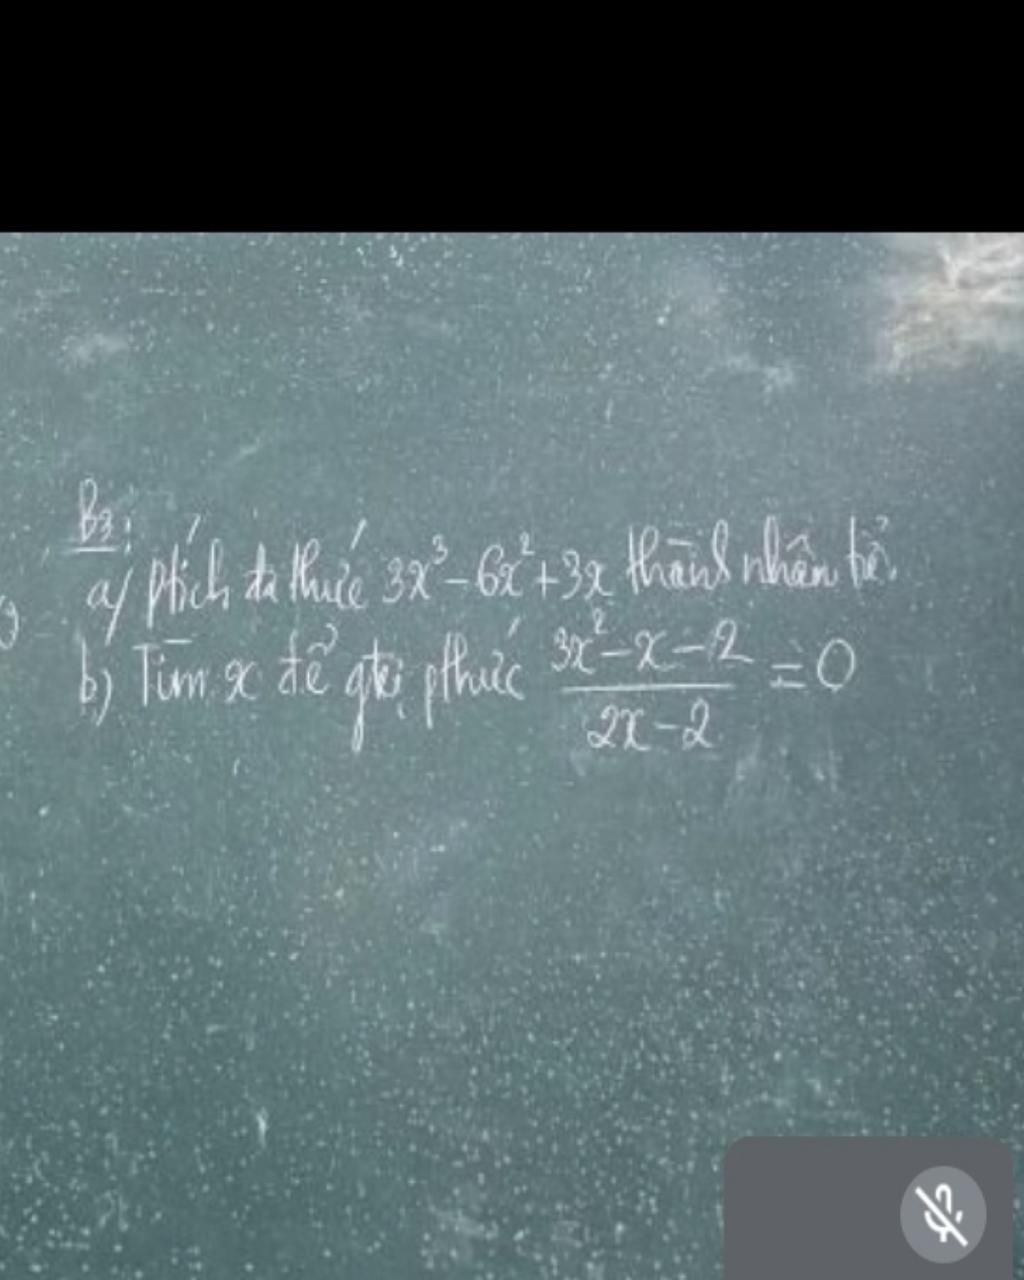 B3:
a/ ptích đa thức 3x³ - 6x² + 3x thành nhân tử.
b) Tìm x để gtrị pthức \frac{3x² - x - 2}{2x - 2} = 0